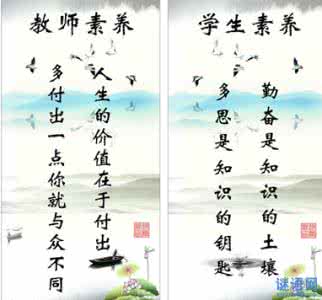 教师素养
人生的价值在于付出
多付出一点你就与众不同
学生素养
勤奋是知识的土壤
多思是知识的钥匙
谜语网